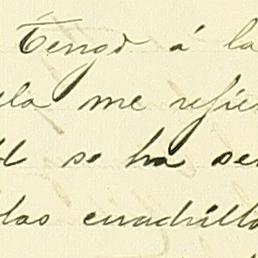 Tengo á la
ela me refie
se ha se
las cuadrill